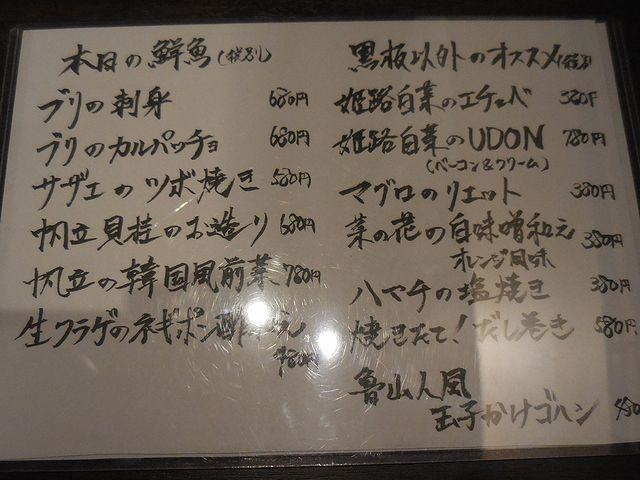 本日の鮮魚(税別)
ブリの刺身 680円
ブリのカルパッチョ 680円
サザエのツボ焼き 580円
帆立貝柱のお造り 680円
帆立の韓国風前菜 780円
生クラゲのネギポン酢
黒板以外のオススメ(税別
姫路白菜のエチュベ 380円
姫路白菜のUDON 780円
(ベーコン&クリーム)
マグロのリエット 380円
菜の花の白味噌和え 380円
オレンジ風味
ハマチの塩焼き 380円
焼きたて!だし巻き 580円
魯山人風
玉子かけゴハン